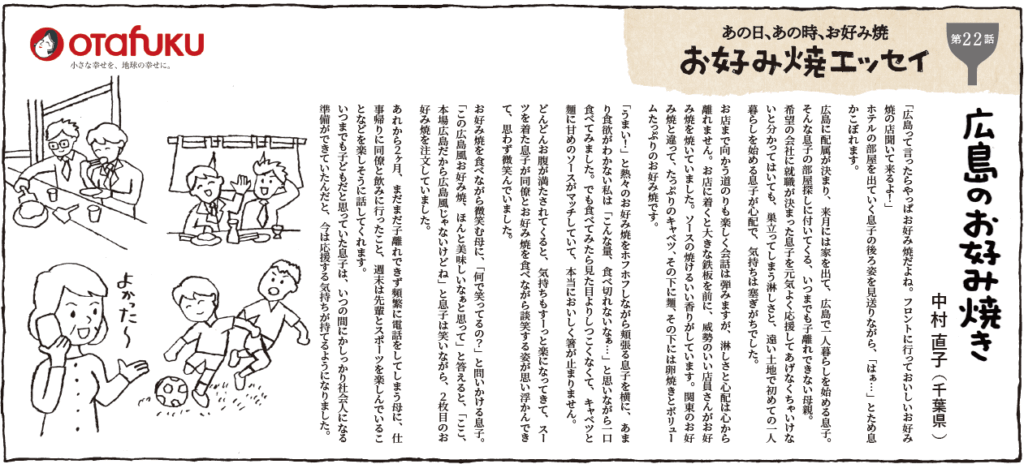 OTAFUKU
小さな幸せを、地球の幸せに。
あの日、あの時、お好み焼
お好み焼エッセイ
第22話
広島のお好み焼き
中村 直子（千葉県）
「広島って言ったらやっぱお好み焼だよね。フロントに行っておいしいお好み
焼の店聞いて来るよ！」
ホテルの部屋を出ていく息子の後ろ姿を見送りながら、「はぁ…」とため息
がこぼれます。
広島に配属が決まり、来月には家を出て、広島で一人暮らしを始める息子。
そんな息子の部屋探しに付いてくる、いつまでも子離れできない母親。
希望の会社に就職が決まった息子を元気よく応援してあげなくちゃいけな
いと分かってはいても、巣立ってしまう淋しさと、遠い土地で初めての一人
暮らしを始める息子が心配で、気持ちは塞ぎがちでした。
お店まで向かう道のりも楽しく会話は弾みますが、淋しさと心配は心から
離れません。お店に着くと大きな鉄板を前に、威勢のいい店員さんがお好
み焼を焼いていました。ソースの焼けるいい香りがしています。関東のお好
み焼と違って、たっぷりのキャベツ、その下に麺、その下には卵焼きとボリュー
ムたっぷりのお好み焼です。
「うまい！」と熱々のお好み焼をホフホフしながら頬張る息子を横に、あま
り食欲がわかない私は「こんな量、食べ切れないなぁ…」と思いながら一口
食べてみました。でも食べてみたら見た目よりしつこくなくて、キャベツと
麺に甘めのソースがマッチしていて、本当においしくて箸が止まりません。
どんどんお腹が満たされてくると、気持ちもすーっと楽になってきて、スー
ツを着た息子が同僚とお好み焼を食べながら談笑する姿が思い浮かんでき
て、思わず微笑んでいました。
お好み焼を食べながら微笑む母に、「何で笑ってるの？」と問いかける息子。
「この広島風お好み焼、ほんと美味しいなぁと思って」と答えると、「ここ、
本場広島だから広島風じゃないけどね」と息子は笑いながら、2枚目のお
好み焼を注文していました。
あれから2ヶ月、まだまだ子離れできず頻繁に電話をしてしまう母に、仕
事帰りに同僚と飲みに行ったこと、週末は先輩とスポーツを楽しんでいるこ
となどを楽しそうに話してくれます。
いつまでも子どもだと思っていた息子は、いつの間にかしっかり社会人になる
準備ができていたんだと、今は応援する気持ちが持てるようになりました。
よかった〜